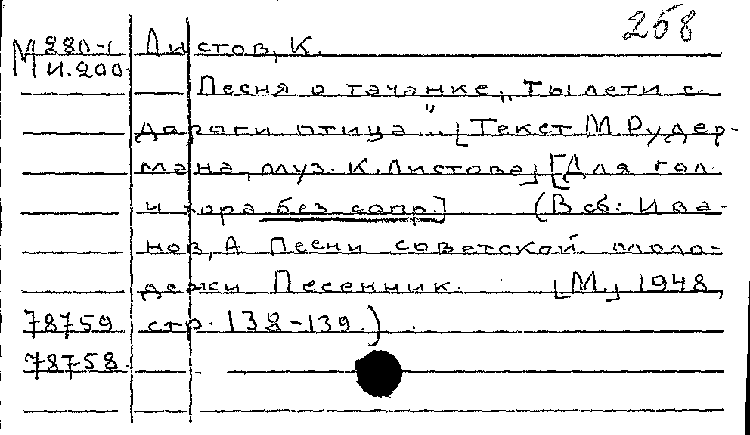 258
М 280-1 Листов, К.
И.200
Песня о тачанке „Ты лети с
дороги птица..." [Текст М. Рудер-
мана, муз. К. Листова] [Для гол.
и хора без сопр.] (В сб: Ива-
нов, А Песни советской моло-
дежи Песенник. [М.] 1948,
78759 стр. 138-139.)
78758